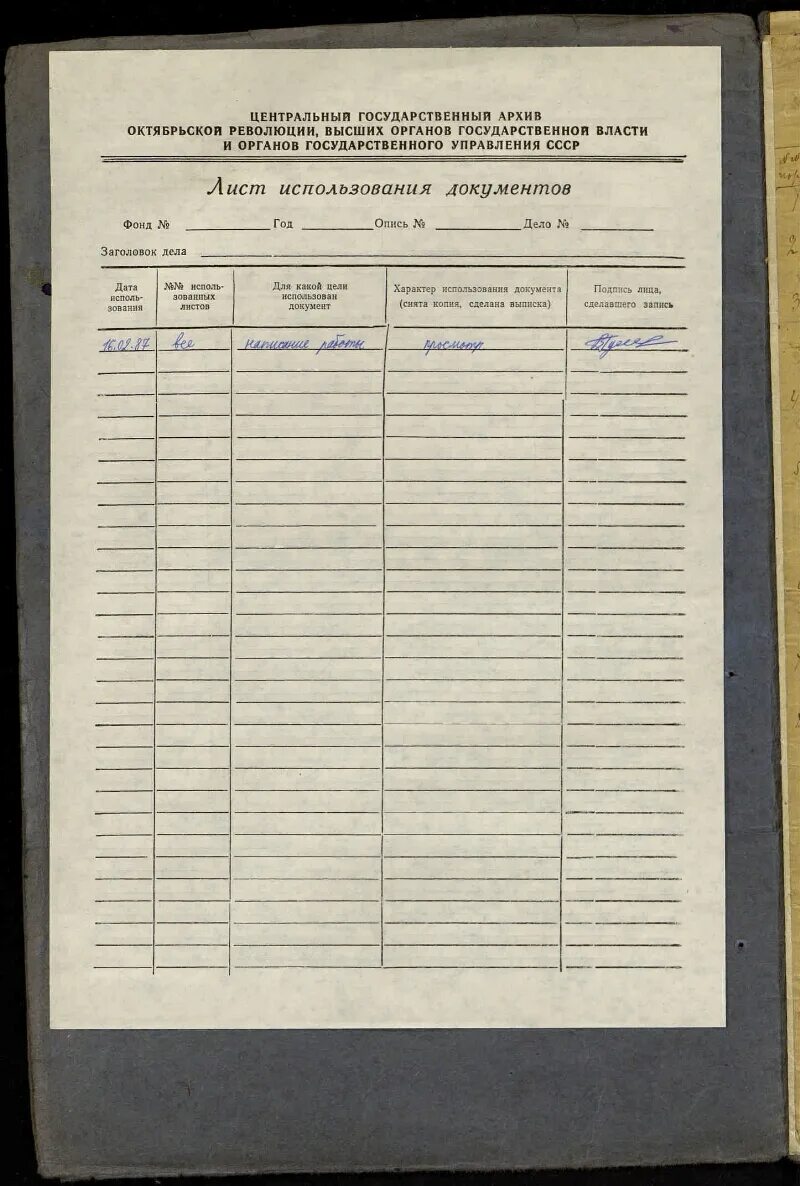 ЦЕНТРАЛЬНЫЙ ГОСУДАРСТВЕННЫЙ АРХИВ
ОКТЯБРЬСКОЙ РЕВОЛЮЦИИ, ВЫСШИХ ОРГАНОВ ГОСУДАРСТВЕННОЙ ВЛАСТИ
И ОРГАНОВ ГОСУДАРСТВЕННОГО УПРАВЛЕНИЯ СССР
Лист использования документов
Фонд № Год Опись № Дело №
Заголовок дела
Дата
исполь-
зования
№№ исполь-
зованных
листов
Для какой цели
использован
документ
Характер использования документа
(снята копия, сделана выписка)
Подпись лица,
сделавшего запись
16.02.87 все написание работы просмотр